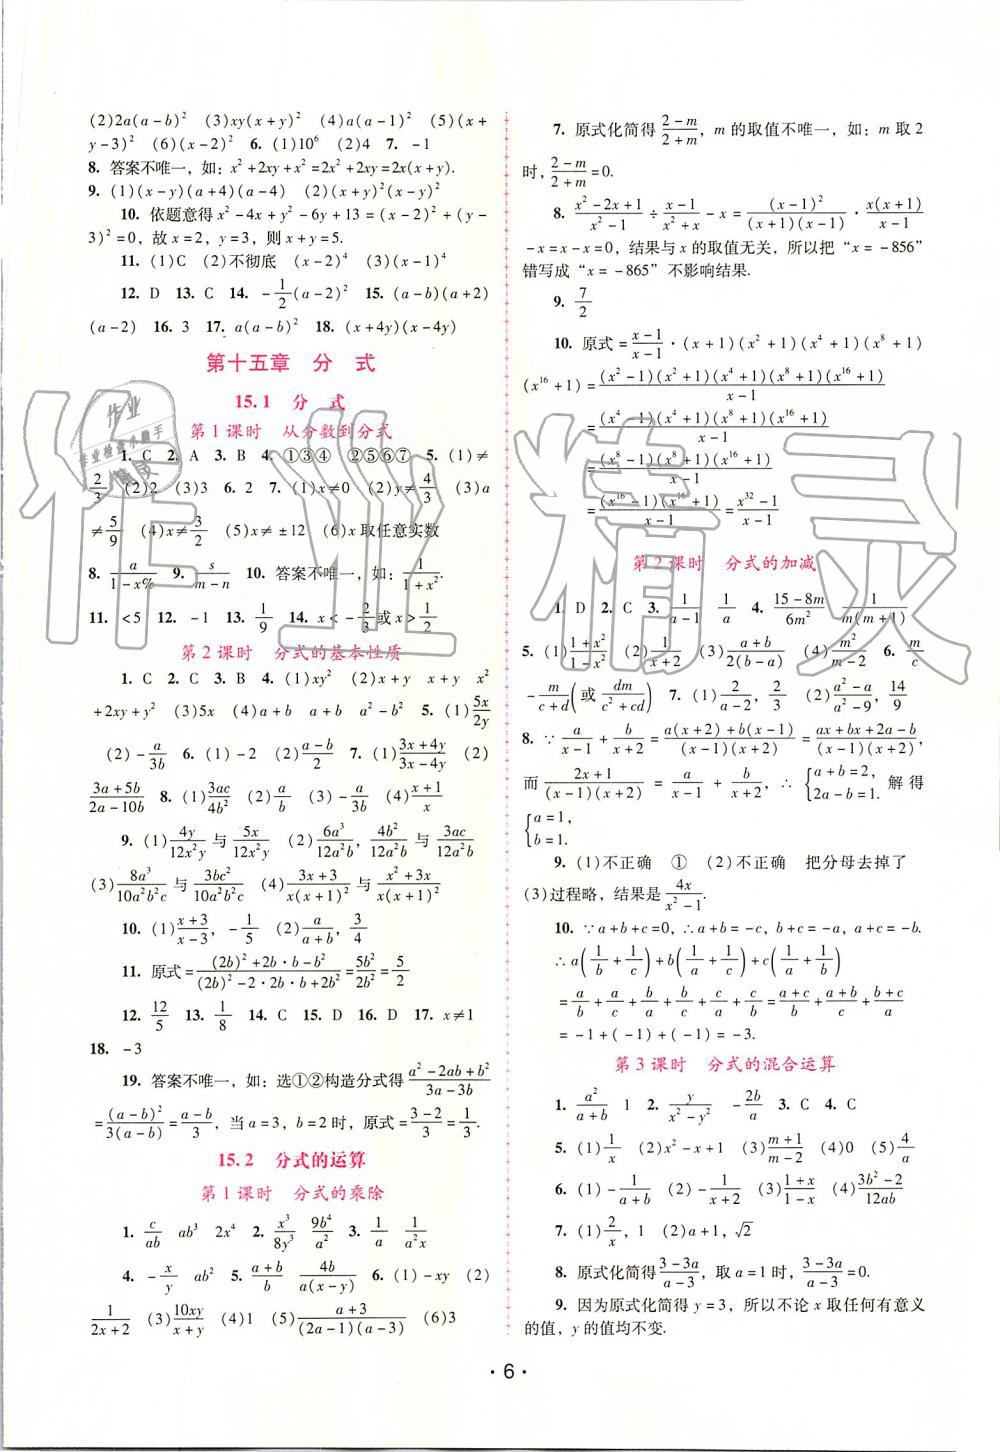 (2)2a(a-b)²　(3)xy(x+y)²　(4)a(a-1)²　(5)(x+
y-3)²　(6)(x-2)²　6. (1)10⁶　(2)4　7. -1
8. 答案不唯一，如：x²+2xy+x²=2x²+2xy=2x(x+y).
9. (1)(x-y)(a+4)(a-4)　(2)(x+y)²(x-y)²
10. 依题意得 x²-4x+y²-6y+13=(x-2)²+(y-
3)²=0，故 x=2，y=3，则 x+y=5.
11. (1)C　(2)不彻底　(x-2)⁴　(3)(x-1)⁴
12. D　13. C　14. -1/2(a-2)²　15. (a-b)(a+2)
(a-2)　16. 3　17. a(a-b)²　18. (x+4y)(x-4y)
第十五章　分　式
15.1　分　式
第1课时　从分数到分式
1. C　2. A　3. B　4. ①③④　②⑤⑥⑦　5. (1)≠
2/3　(2)2　(3)3　6. 2　7. (1)x≠0　(2)y≠4/3　(3)a
≠5/9　(4)x≠3/2　(5)x≠±12　(6)x取任意实数
8. a/(1-x%)　9. s/(m-n)　10. 答案不唯一，如：1/(1+x²).
11. <5　12. -1　13. 1/9　14. x<-2/3或x>1/2
第2课时　分式的基本性质
1. C　2. C　3. B　4. (1)xy²　(2)x+y　x+y　x²
+2xy+y²　(3)5x　(4)a+b　a+b　a²-b²　5. (1)5x/2y
(2)-a/3b　6. (1)-2　(2)(a-b)/2　7. (1)(3x+4y)/(3x-4y)　(2)
(3a+5b)/(2a-10b)　8. (1)3ac/4b²　(2)a/b　(3)-a/3b　(4)(x+1)/x
9. (1)4y/12x²y与5x/12x²y　(2)6a³/12a²b，4b²/12a²b与3ac/12a²b
(3)8a³/10a²b²c与3bc²/10a²b²c　(4)(3x+3)/x(x+1)²与(x²+3x)/x(x+1)²
10. (1)(x+3)/(x-3)，-1/5　(2)a/(a+b)，3/4
11. 原式=((2b)²+2b·b-b²)/((2b)²-2·2b·b+2b²)=5b²/2b²=5/2
12. 12/5　13. 1/8　14. C　15. D　16. D　17. x≠1
18. -3
19. 答案不唯一，如：选①②构造分式得(a²-2ab+b²)/(3a-3b)
=(a-b)²/3(a-b)=(a-b)/3，当a=3，b=2时，原式=(3-2)/3=1/3.
15.2　分式的运算
第1课时　分式的乘除
1. c/ab　ab³　2x⁴　2. x³/8y³　9b⁴/a²　3. 1/a　1/a²x
4. -x/y　ab²　5. (a+b)/b　4b/a(x-y)　6. (1)-xy　(2)
1/(2x+2)　(3)10xy/(x+y)　(4)1　(5)(a+3)/(2a-1)(a-3)　(6)3
7. 原式化简得(2-m)/(2+m)，m的取值不唯一，如：m取2
时，(2-m)/(2+m)=0.
8. (x²-2x+1)/(x²-1)÷(x-1)/(x²+x)-x=(x-1)²/(x+1)(x-1)·x(x+1)/(x-1)
-x=x-x=0，结果与x的取值无关，所以把“x=-856”
错写成“x=-865”不影响结果.
9. 7/2
10. 原式=(x-1)/(x-1)·(x+1)(x²+1)(x⁴+1)(x⁸+1)
(x¹⁶+1)=(x²-1)(x²+1)(x⁴+1)(x⁸+1)(x¹⁶+1)/(x-1)
=(x⁴-1)(x⁴+1)(x⁸+1)(x¹⁶+1)/(x-1)
=(x⁸-1)(x⁸+1)(x¹⁶+1)/(x-1)
=(x¹⁶-1)(x¹⁶+1)/(x-1)=(x³²-1)/(x-1)
第2课时　分式的加减
1. D　2. C　3. 1/(a-1)　1/a　4. (15-8m)/6m²　1/m(m+1)
5. (1)(1+x²)/(1-x²)　(2)1/(x+2)　(3)(a+b)/2(b-a)　(4)m²/(m-2)　6. m/c
-m/(c+d)(或dm/(c²+cd))　7. (1)2/(a-2)，2/3　(2)(a²-a)/(a²-9)，14/9
8. ∵a/(x-1)+b/(x+2)=(a(x+2)+b(x-1))/(x-1)(x+2)=(ax+bx+2a-b)/(x-1)(x+2)，
而(2x+1)/(x-1)(x+2)=a/(x-1)+b/(x+2)，∴{a+b=2，2a-b=1.解得
{a=1，b=1.
9. (1)不正确　①　(2)不正确　把分母去掉了
(3)过程略，结果是4x/(x²-1).
10. ∵a+b+c=0，∴a+b=-c，b+c=-a，a+c=-b.
∴a(1/b+1/c)+b(1/a+1/c)+c(1/a+1/b)
=a/b+a/c+b/a+b/c+c/a+c/b=(a+c)/b+(a+b)/c+(b+c)/a
=-1+(-1)+(-1)=-3.
第3课时　分式的混合运算
1. a²/(a+b)　1　2. y/(x²-y²)　-2b/a　3. C　4. C
5. (1)1/x　(2)x²-x+1　(3)(m+1)/(m-2)　(4)0　(5)4/a
6. (1)-1/(a+b)　(2)-1/(x+2)　(3)(1+x)/(1-x)　(4)(3b²-2)/12ab
7. (1)2/x，1　(2)a+1，√2
8. 原式化简得(3-3a)/(a-3)，取a=1时，(3-3a)/(a-3)=0.
9. 因为原式化简得y=3，所以不论x取任何有意义
的值，y的值均不变.
·6·
作业精灵